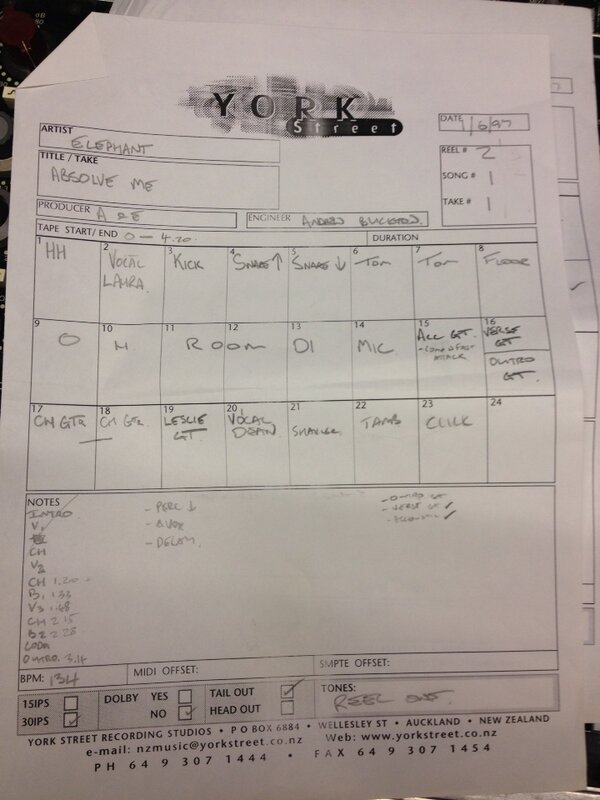 YORK
Street
DATE 1/6/97
ARTIST
ELEPHANT
TITLE / TAKE
ABSOLVE ME
REEL # 2
SONG # 1
TAKE # 1
PRODUCER
ENGINEER ANDREW BUCKTON
TAPE START/ END 0 — 4.20
DURATION
1 HH
2 VOCAL LAURA
3 KICK
4 SNARE ↑
5 SNARE ↓
6 TOM
7 TOM
8 FLOOR
9 O
10 H
11 12 ROOM
13 DI
14 MIC
15 ACC GT
- COMP FAST ATTACK
16 VERSE GT
OUTRO GT.
17 CH GTR
18 CH GTR
19 LESLIE GT
20 VOCAL DEAN
21 SHAKER
22 TAMB
23 CLICK
24
NOTES
INTRO
V1
CH
V2
CH 1.20
B1 1.33
V3 1.48
CH 2 15
B2 2 28
CODA
OUTRO 3.14
- PERC ↓
- OUTRO GT
- VERSE GT ✓
- ACOUSTIC ✓
BPM: 134
MIDI OFFSET:
SMPTE OFFSET:
15IPS
30IPS ✓
DOLBY YES
NO ✓
TAIL OUT ✓
HEAD OUT
TONES:
REEL ONE.
YORK STREET RECORDING STUDIOS • P O BOX 6884 • WELLESLEY ST • AUCKLAND • NEW ZEALAND
e-mail: nzmusic@yorkstreet.co.nz Web: www.yorkstreet.co.nz
PH 64 9 307 1444 • FAX 64 9 307 1454